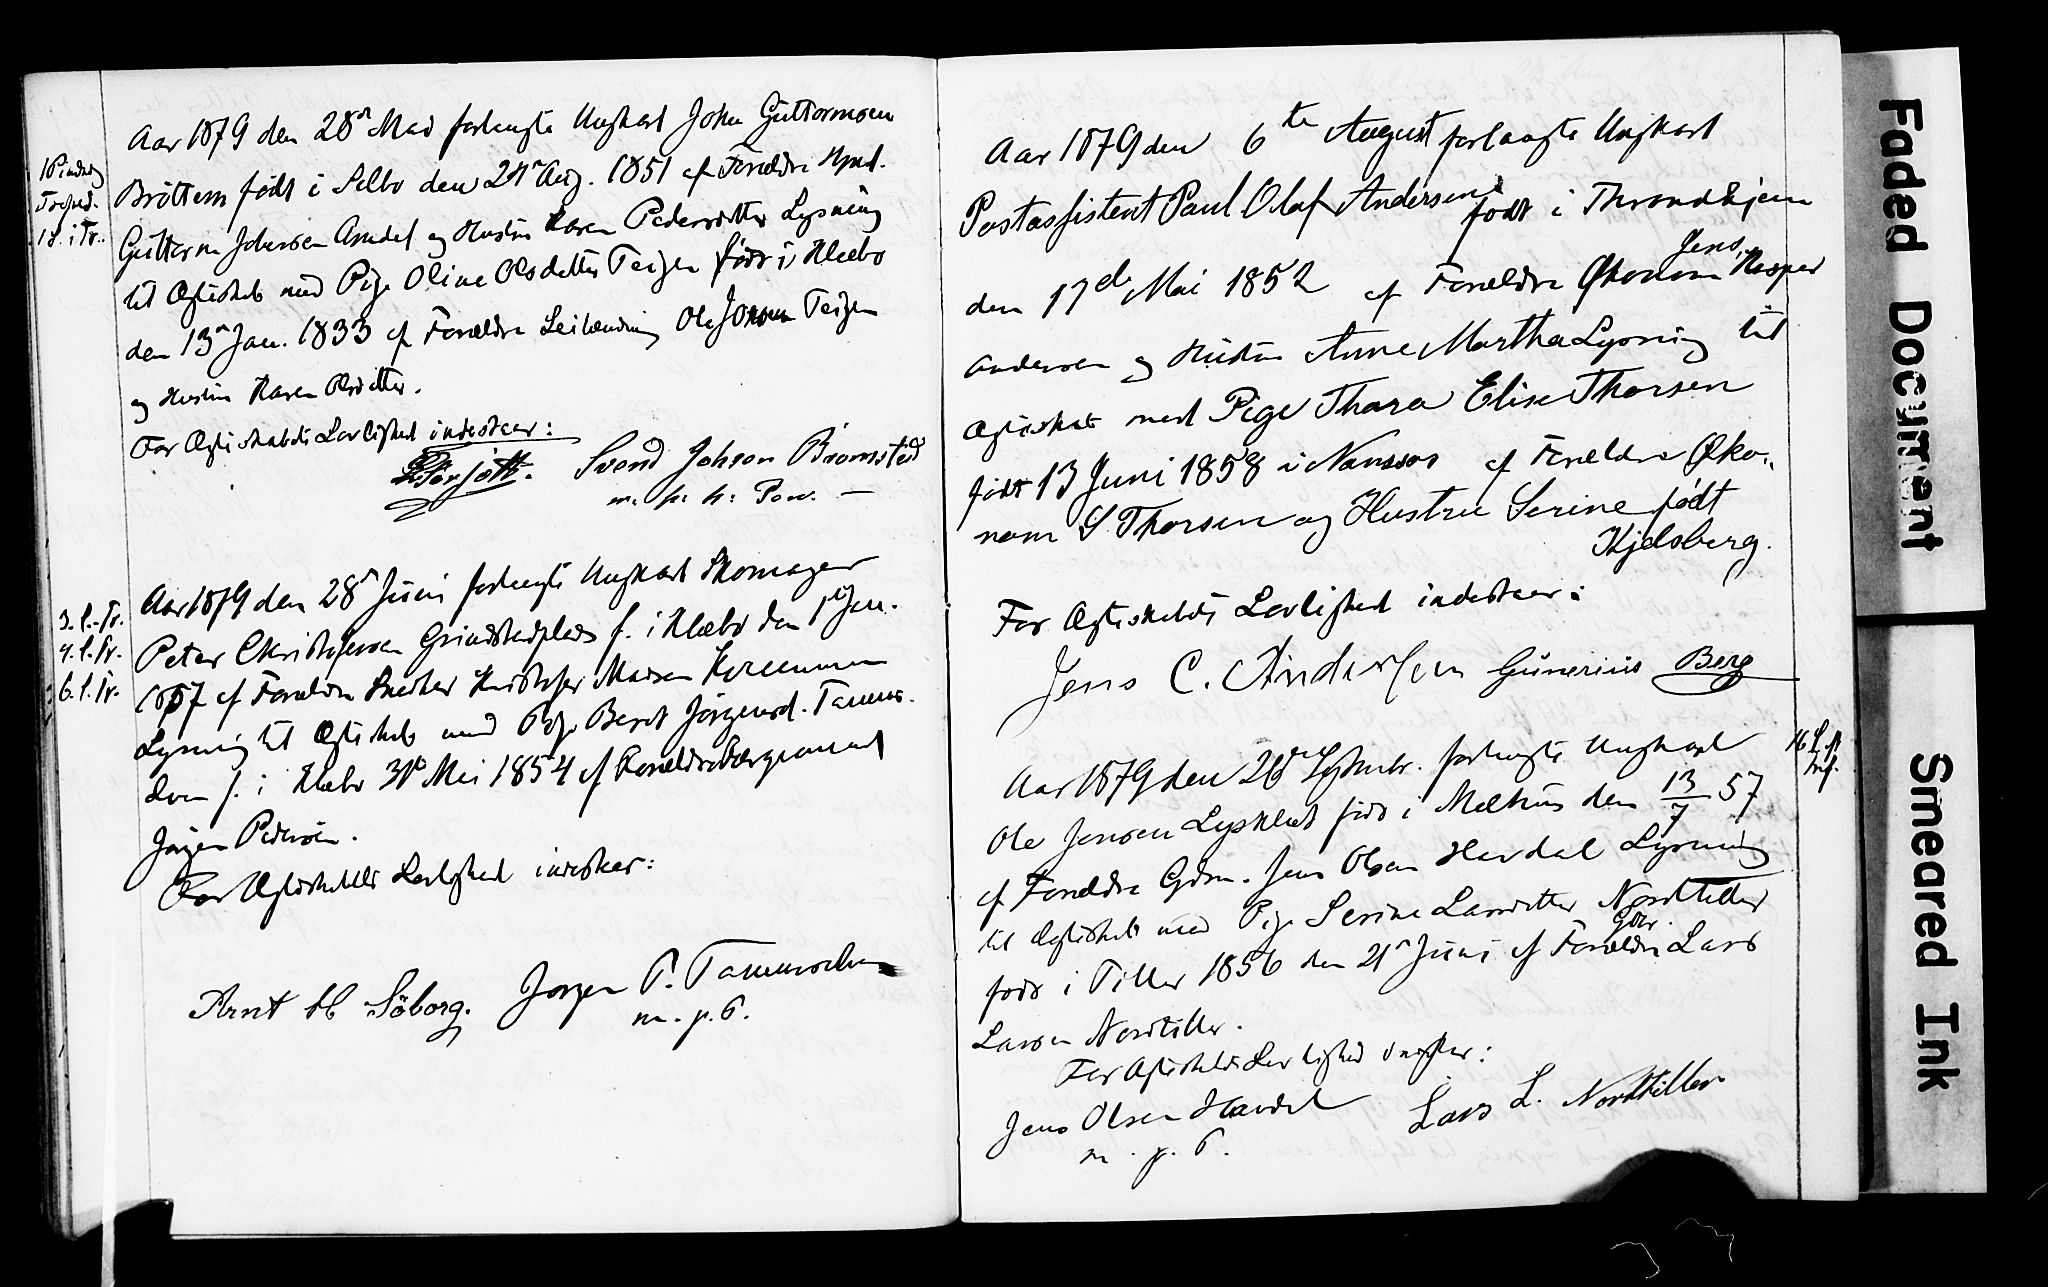 Aar 1879 den 28de Mai forlangte Ungkarl John Guttormsen
1 Pindsdag
Trefred.
1 S. i Tr.
Bröttem født i Selbo den 24de Aug. 1851 af Forældre Gmd.
Guttorm Johnsen Amdal og Hustru Karen Pedersdatter Lysning
til Ægteskab med Pige Oline Olsdatter Teigen født i Klæbo
den 13de Jan. 1833 af Forældre Leilænding Ole Jonsen Teigen
og Hustru Karen Olsdatter.
For Ægteskabets Lovlighed indestaar:
Svend Johsen Bromsted
m. p. p: Pen. —
Aar 1879 den 28de Juni forlangte Ungkarl Skomager
3. S. Tr.
4. S. Tr.
6. S. Tr.
Peter Christofersen Grindstadplads f. i Klæbo den 1ste Jan.
1857 af Forældre Snedker Kristofer Madsen
Lysning til Ægteskab med Pige Beret Jørgensd. Tanem
f. i Klæbo 31te Mai 1854 af Forældre
Jørgen Pedersen.
For Ægteskabets Lovlighed indestaar:
Arnt M. Söborg. Jørgen P. Tanemsoen
m. p. P.
Aar 1879 den 6te August forlangte Ungkarl
Postassistent Paul Olaf Andersen født i Throndhjem
den 17de Mai 1852 af Forældre Økonom Jens Kasper
Andersen og Hustru Anne Martha Lysning til
Ægteskab med Pige Thora Elise Thorsen
født 13 Juni 1858 i Namsos af Forældre Øko„
nom S Thorsen og Hustru Serine født
Kjelsberg.
For Ægteskabets Lovlighed indestaar:
Jens C. Andersen Gunerius Berg
Aar 1879 den 26de Septmbr. forlangte Ungkarl
16 S. e.
Tref.
Ole Jensen Lysklet født i Melhus den 13/7 57
af Forældre Gdm. Jens Olsen Havdal Lysning
til Ægteskab med Pige Serine Larsdatter Nordtiller
født i Tiller 1856 den 21de Juni af Forældre Gdbr. Lars
Larsen Nordtiller.
For Ægteskabets Lovlighed indestaar:
Jens Olsen Havdal Lars L. Nordtiller
m. p. P.
Faded Document
Smeared Ink